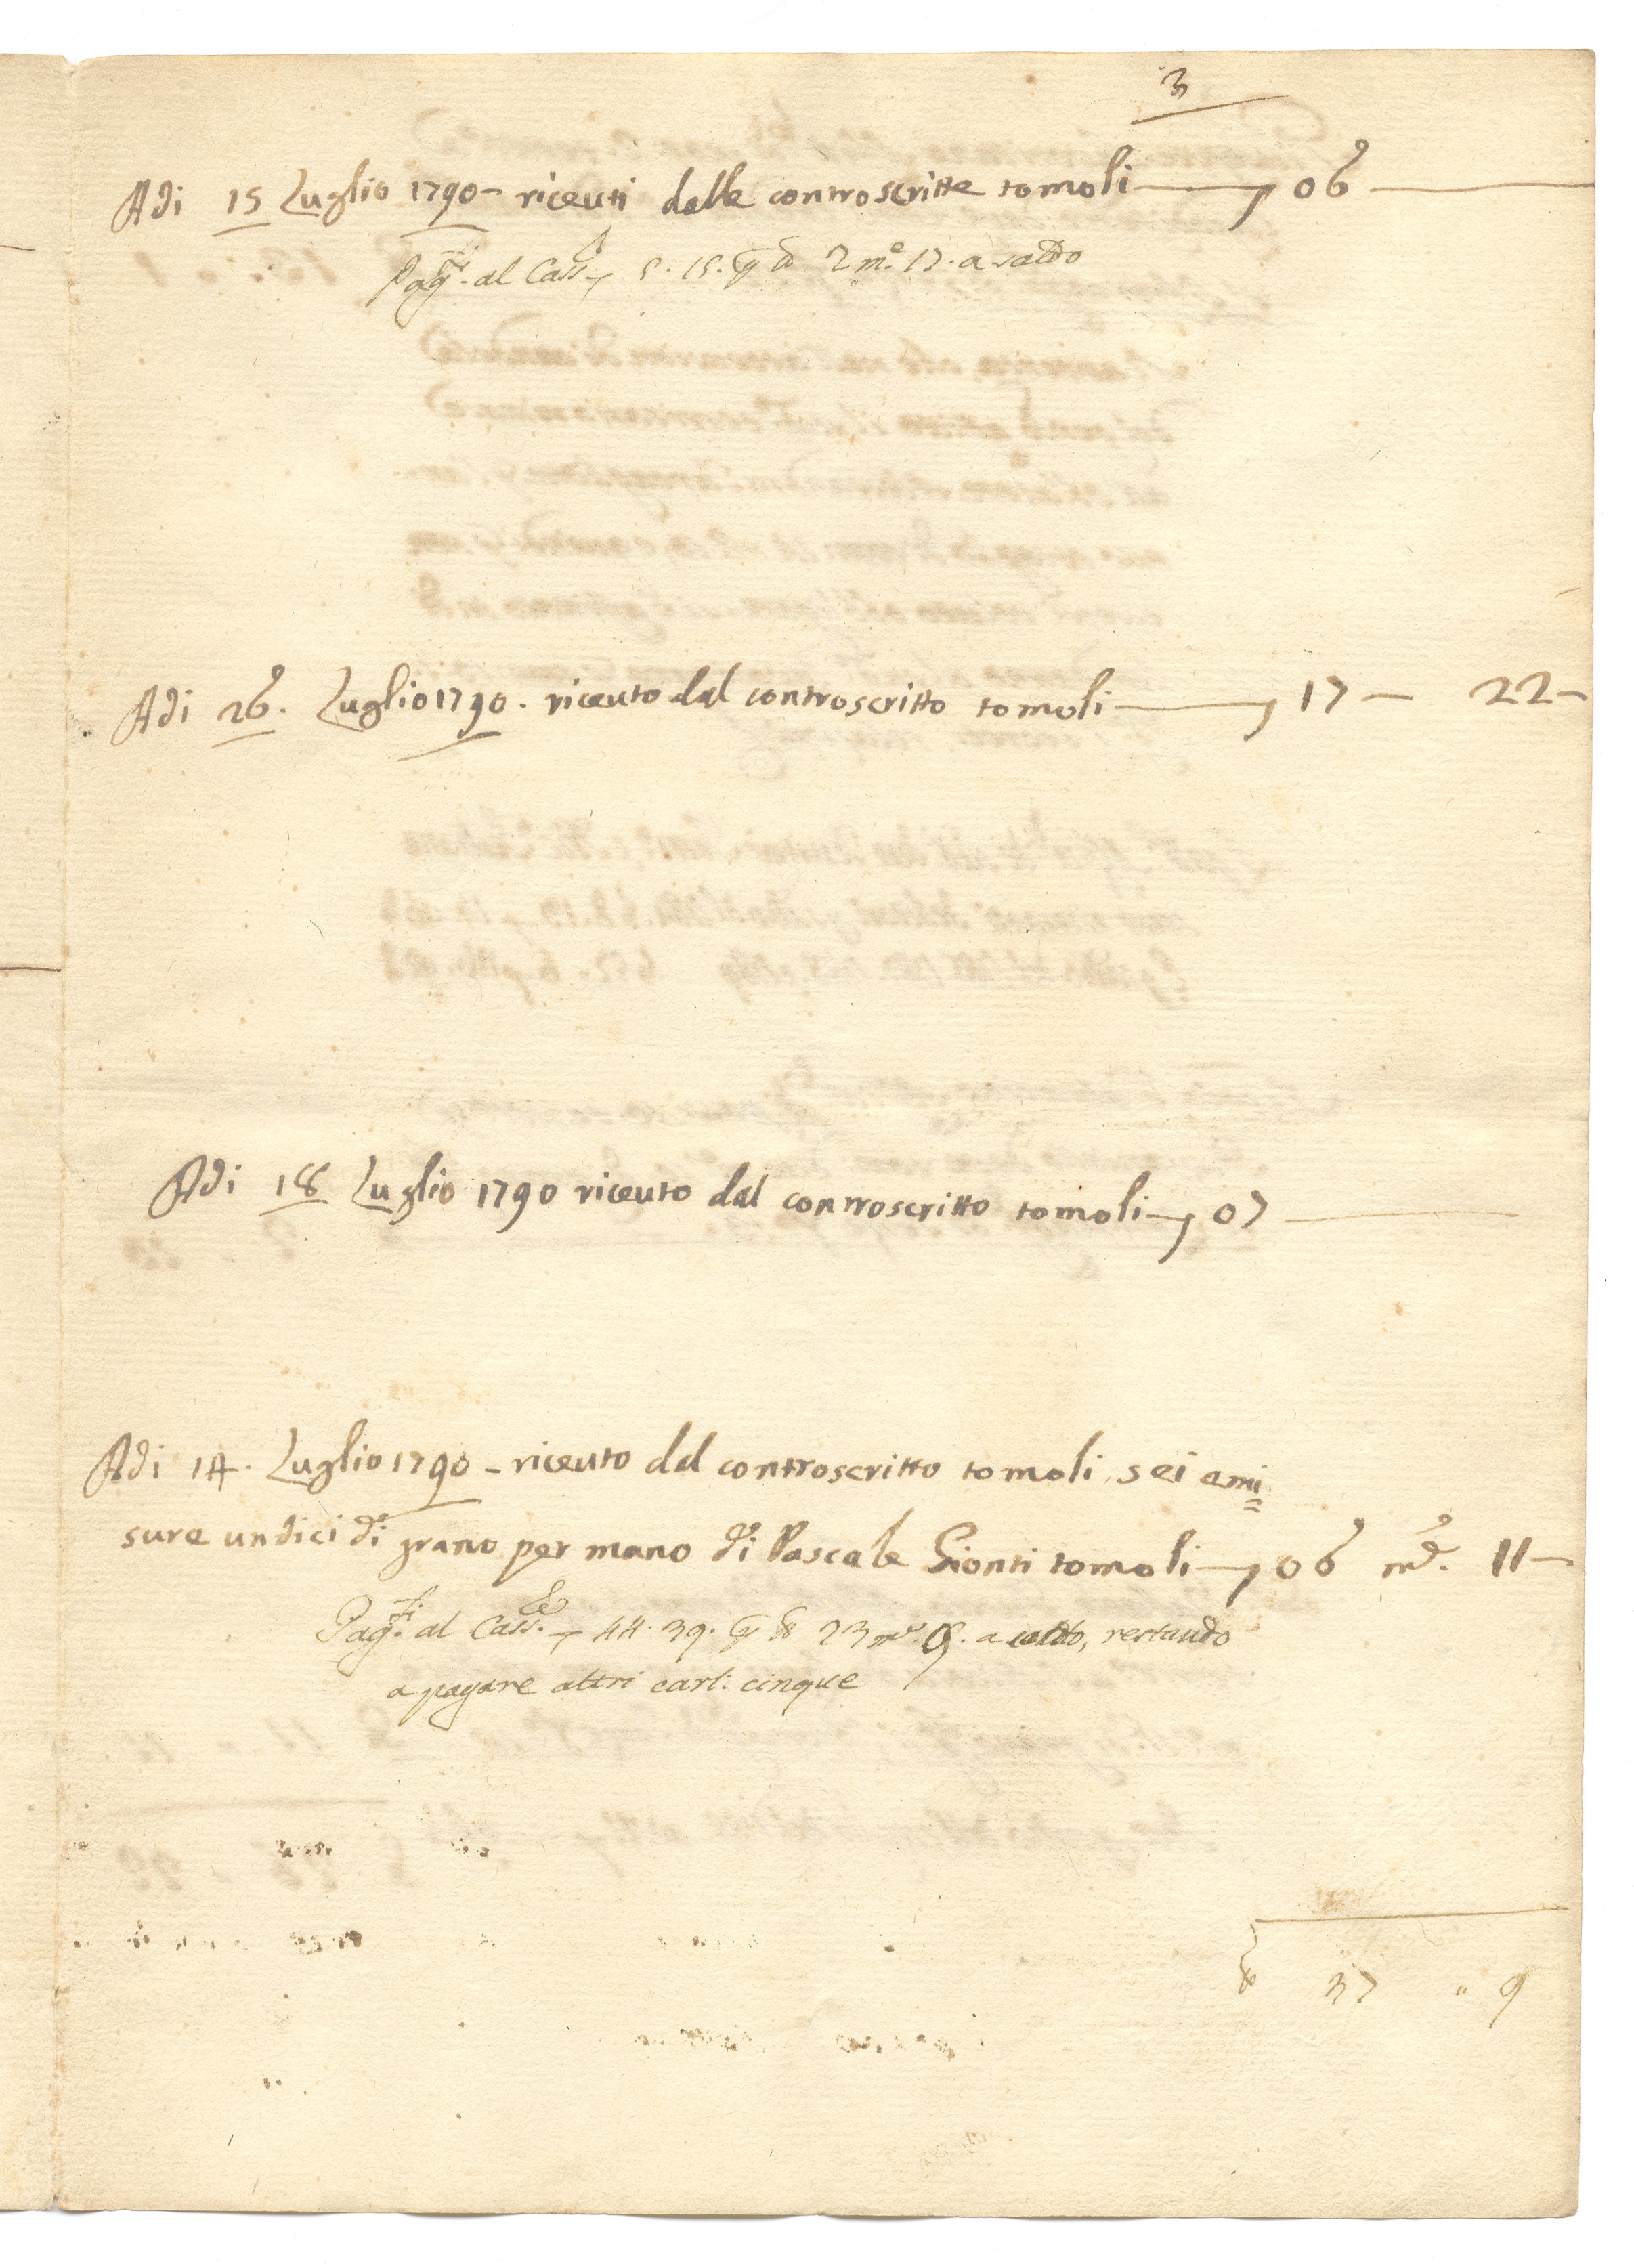 3
Adi 15 Luglio 1790 - riceuti dalle controscritte tomoli — 06 —
Pag.ti al Cass.  5. 15. 2 m.e 17. a saldo
Adi 26. Luglio 1790. riceuto dal controscritto tomoli — 17 — 22 —
Adi 18 Luglio 1790 riceuto dal controscritto tomoli — 07 —
Adi 14. Luglio 1790 - riceuto dal controscritto tomoli sei e mi=
sure undici di grano per mano di Pascale Gionti tomoli — 06 m.e 11 —
Pag.ti al Cass.e 44. 39. 23 m.e 9. a saldo, restando
a pagare altri carl: cinque
37 " 9